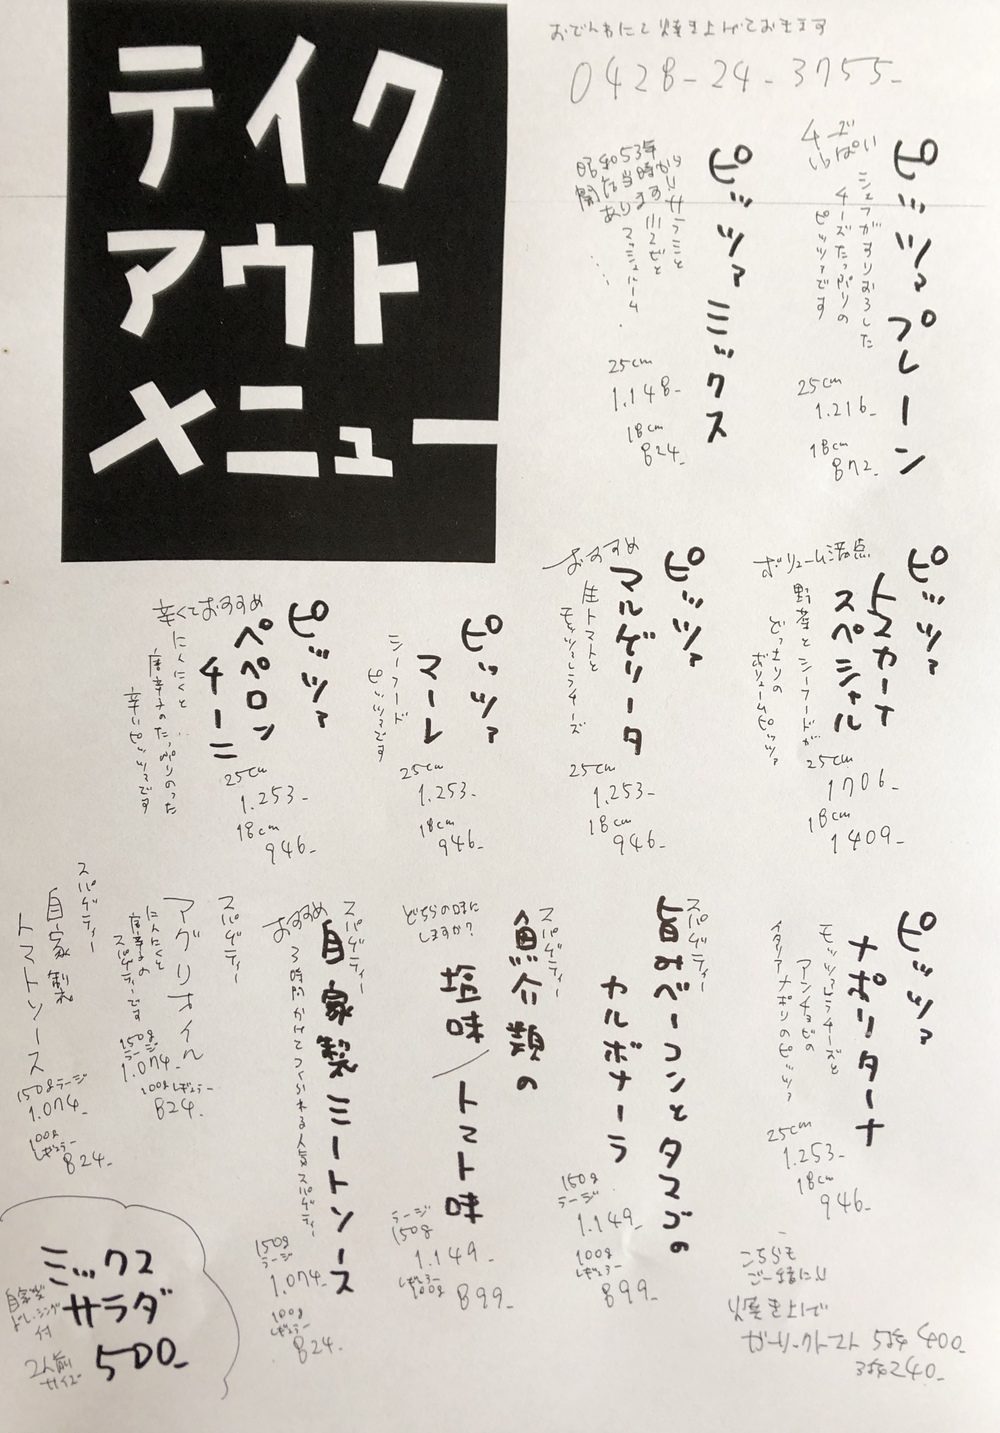 テイク
アウト
メニュー
おでんわにて焼き上げておきます
0428-24-3755-
ピッツァプレーン
チーズいっぱい
シェフがすりおろした
チーズたっぷりの
ピッツァです
25cm
1.216-
18cm
872-
ピッツァミックス
昭和53年
開店当時から
あります!!
サラミと
エビと
マッシュルーム
25cm
1.148-
18cm
824-
ピッツァ
トスカーナ
スペシャル
ボリューム満点
野菜とシーフードが
どっさりの
ボリュームピッツァ
25cm
1706-
18cm
1409-
ピッツァ
マルゲリータ
おすすめ
生トマトと
モッツァレラチーズ
25cm
1.253-
18cm
946-
ピッツァ
マーレ
シーフード
ピッツァです
25cm
1.253-
18cm
946-
ピッツァ
ペペロン
チーニ
辛くておすすめ
にんにくと
唐辛子のたっぷりのった
辛いピッツァです
25cm
1.253-
18cm
946-
ピッツァ
ナポリターナ
モッツァレラチーズと
アンチョビの
イタリアナポリのピッツァ
25cm
1.253-
18cm
946-
スパゲティー
旨みベーコンとタマゴの
カルボナーラ
150g
ラージ
1.149-
100g
レギュラー
899-
スパゲティー
魚介類の
塩味/トマト味
どちらの味に
しますか?
ラージ
150g
1.149-
レギュラー
100g
899-
スパゲティー
自家製ミートソース
おすすめ
3時間かけてつくられる人気スパゲティー
150g
ラージ
1.074-
100g
レギュラー
824-
スパゲティー
アグリオイル
にんにくと
唐辛子の
スパゲティーです
150g
ラージ
1.074-
100gレギュラー
824-
スパゲティー
自家製
トマトソース
150gラージ
1.074-
100g
レギュラー
824-
ミックス
サラダ
自家製
ドレッシング
付
2人前
サイズ
500-
こちらも
ご一緒に!!
焼き上げ
ガーリックトースト 5ヶ 400-
3ヶ 240-